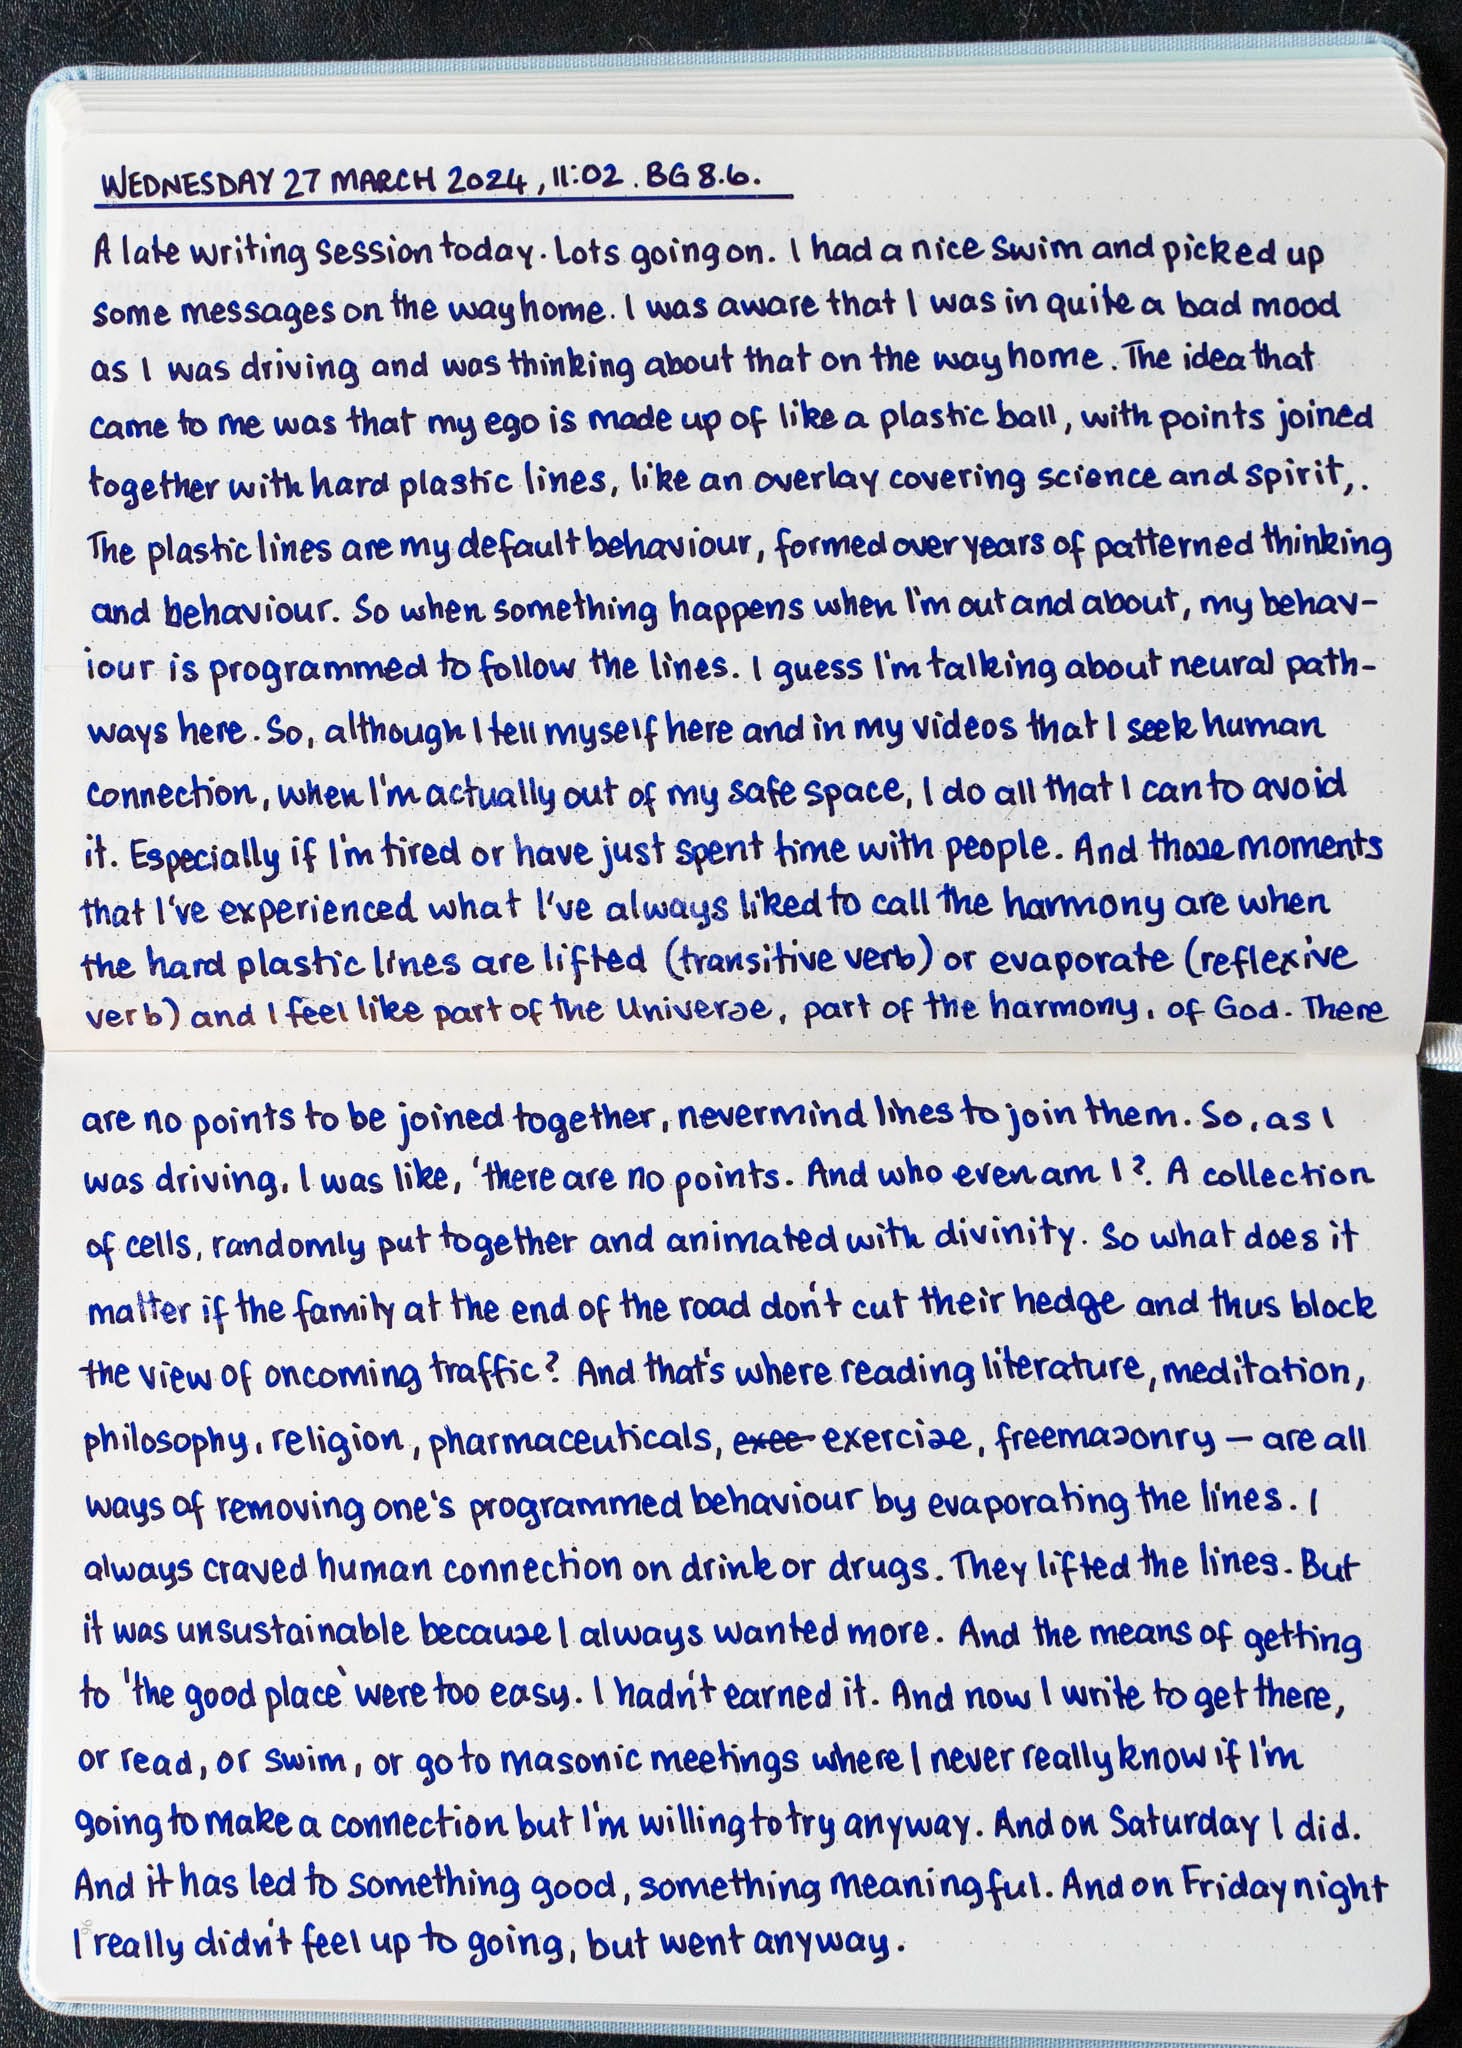 WEDNESDAY 27 MARCH 2024, 11:02. BG 8.6.
A late writing session today. Lots going on. I had a nice swim and picked up
some messages on the way home. I was aware that I was in quite a bad mood
as I was driving and was thinking about that on the way home. The idea that
came to me was that my ego is made up of like a plastic ball, with points joined
together with hard plastic lines, like an overlay covering science and spirit,.
The plastic lines are my default behaviour, formed over years of patterned thinking
and behaviour. So when something happens when I'm out and about, my behav-
iour is programmed to follow the lines. I guess I'm talking about neural path-
ways here. So, although I tell myself here and in my videos that I seek human
connection, when I'm actually out of my safe space, I do all that I can to avoid
it. Especially if I'm tired or have just spent time with people. And those moments
that I've experienced what I've always liked to call the harmony are when
the hard plastic lines are lifted (transitive verb) or evaporate (reflexive
verb) and I feel like part of the Universe, part of the harmony, of God. There
are no points to be joined together, nevermind lines to join them. So, as I
was driving, I was like, 'there are no points. And who even am I?. A collection
of cells, randomly put together and animated with divinity. So what does it
matter if the family at the end of the road don't cut their hedge and thus block
the view of oncoming traffic? And that's where reading literature, meditation,
philosophy, religion, pharmaceuticals, exee exercise, freemasonry — are all
ways of removing one's programmed behaviour by evaporating the lines. I
always craved human connection on drink or drugs. They lifted the lines. But
it was unsustainable because I always wanted more. And the means of getting
to 'the good place' were too easy. I hadn't earned it. And now I write to get there,
or read, or swim, or go to masonic meetings where I never really know if I'm
going to make a connection but I'm willing to try anyway. And on Saturday I did.
And it has led to something good, something meaningful. And on Friday night
I really didn't feel up to going, but went anyway.
96